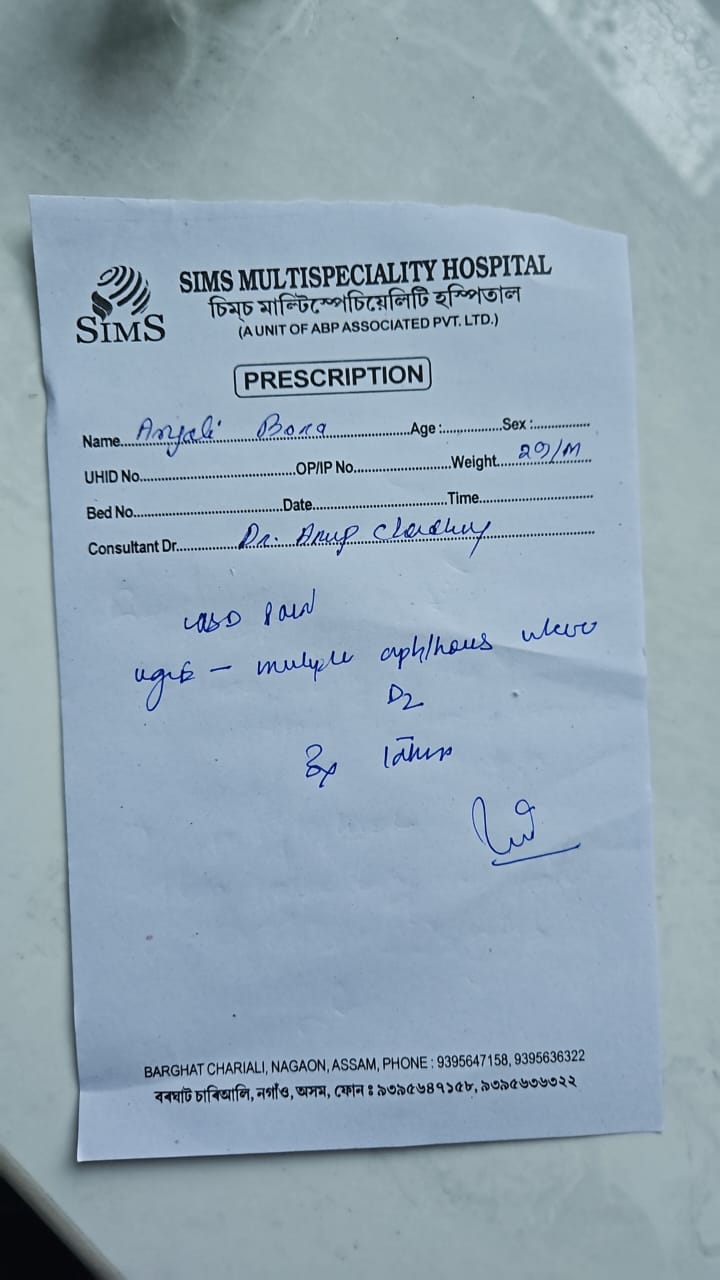 SIMS
SIMS MULTISPECIALITY HOSPITAL
চিম্‌চ মাল্টিস্পেচিয়েলিটি হস্পিতাল
(A UNIT OF ABP ASSOCIATED PVT. LTD.)
PRESCRIPTION
Name Anjali Bora Age : Sex :
UHID No. OP/IP No. Weight 29/M
Bed No. Date Time
Consultant Dr. Dr. Anup
Pain
multiple aphthous ulcer
D2
BARGHAT CHARIALI, NAGAON, ASSAM, PHONE : 9395647158, 9395636322
বৰঘাট চাৰিআলি, নগাঁও, অসম, ফোন : ৯৩৯৫৬৪৭১৫৮, ৯৩৯৫৬৩৬৩২২